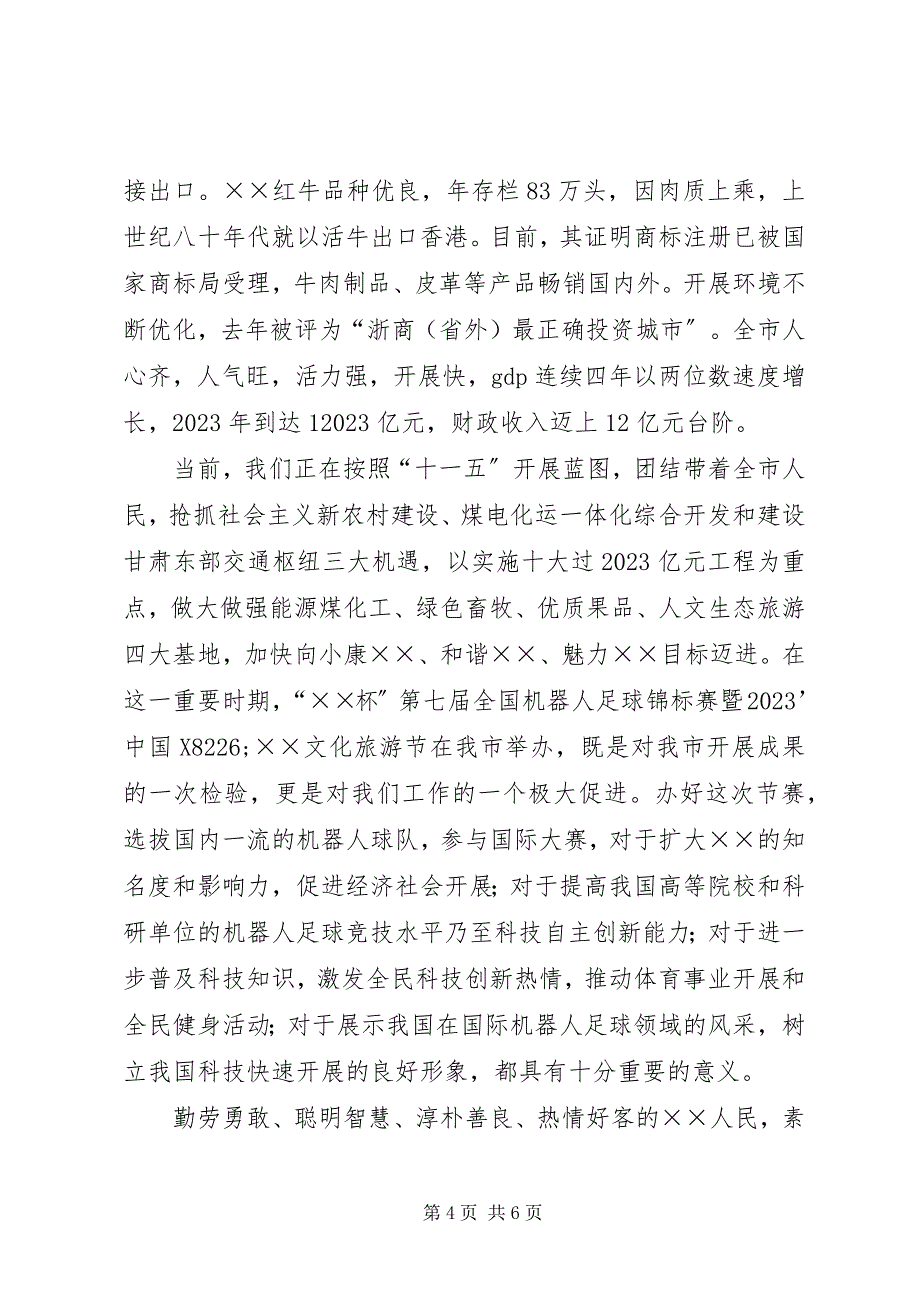 接出口。××红牛品种优良，年存栏 83 万头，因肉质上乘，上
世纪八十年代就以活牛出口香港。目前，其证明商标注册已被国
家商标局受理，牛肉制品、皮革等产品畅销国内外。开展环境不
断优化，去年被评为“浙商（省外）最正确投资城市〞。全市人
心齐，人气旺，活力强，开展快，gdp 连续四年以两位数速度增
长，2023 年到达 12023 亿元，财政收入迈上 12 亿元台阶。
当前，我们正在按照“十一五〞开展蓝图，团结带着全市人
民，抢抓社会主义新农村建设、煤电化运一体化综合开发和建设
甘肃东部交通枢纽三大机遇，以实施十大过 2023 亿元工程为重
点，做大做强能源煤化工、绿色畜牧、优质果品、人文生态旅游
四大基地，加快向小康××、和谐××、魅力××目标迈进。在
这一重要时期，“××杯〞第七届全国机器人足球锦标赛暨 2023’
中国 X8226;××文化旅游节在我市举办，既是对我市开展成果
的一次检验，更是对我们工作的一个极大促进。办好这次节赛，
选拔国内一流的机器人球队，参与国际大赛，对于扩大××的知
名度和影响力，促进经济社会开展；对于提高我国高等院校和科
研单位的机器人足球竞技水平乃至科技自主创新能力；对于进一
步普及科技知识，激发全民科技创新热情，推动体育事业开展和
全民健身活动；对于展示我国在国际机器人足球领域的风采，树
立我国科技快速开展的良好形象，都具有十分重要的意义。
勤劳勇敢、聪明智慧、淳朴善良、热情好客的××人民，素
第 4 页 共 6 页